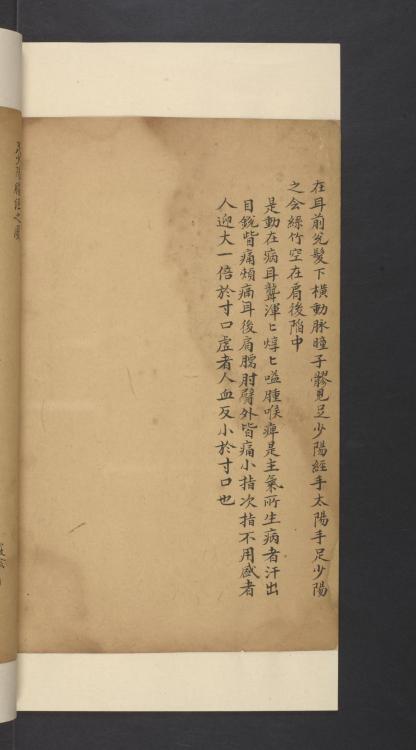 在耳前兊髮下橫動脉瞳子髎見足少陽經手太陽手足少陽
之会絲竹空在眉後陷中
是動在病耳聾渾〻焞〻嗌腫喉痺是主氣所生病者汗出
目銳眥痛頰痛耳後肩臑肘臂外皆痛小指次指不用盛者
人迎大一倍於寸口虛者人血反小於寸口也